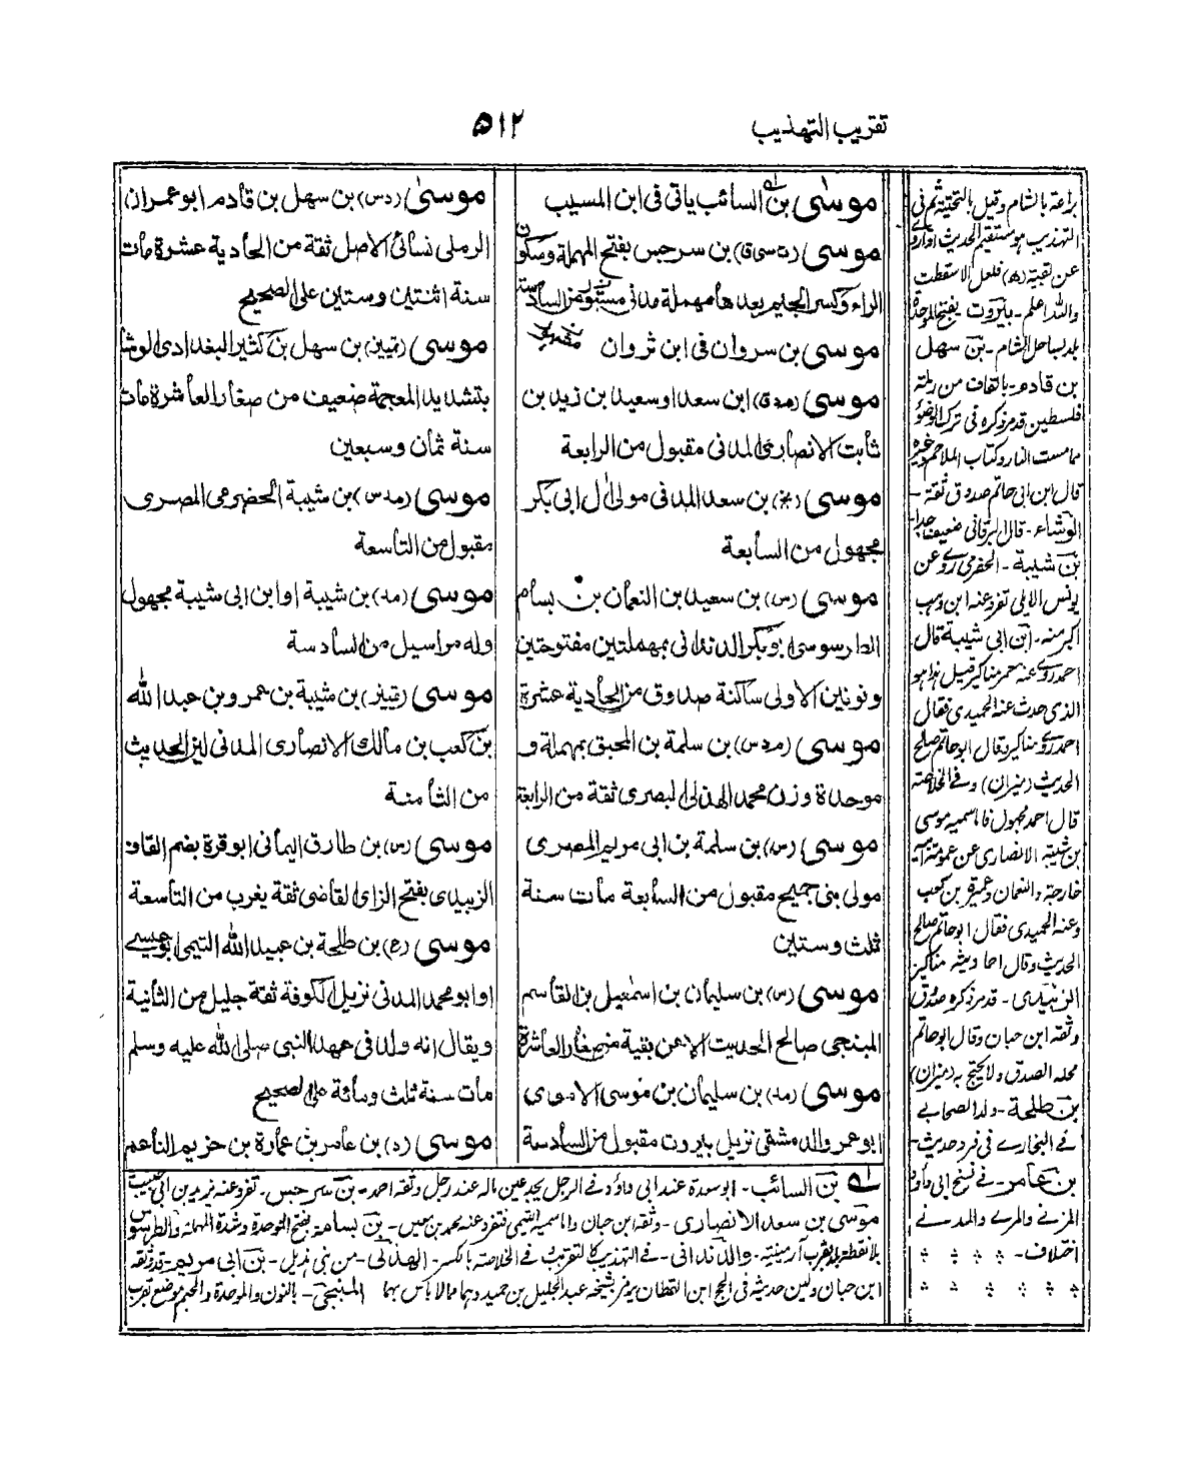 تقريب التهذيب
۵۱۲
موسى بن السائب ياتى فى ابن المسيب
موسى (ت سى ق) بن سرجس بفتح المهملة وسكون
الراء وكسر الجيم بعدها مهملة مدنى مستور من السادسة
موسى بن سروان فى ابن ثروان
موسى (مد ق) ابن سعد او سعيد بن زيد بن
ثابت الانصارى المدنى مقبول من الرابعة
موسى (بخ) بن سعد المدنى مولى ال ابى بكر
مجهول من السابعة
موسى (س) بن سعيد بن النعمان بن بسام
الطرسوسى ابو بكر الدندانى بمهملتين مفتوحتين
ونونين الاولى ساكنة صدوق من الحادية عشرة
موسى (م د س) بن سلمة بن المحبق بمهملة و
موحدة وزن محمد الهذلى البصرى ثقة من الرابعة
موسى (س) بن سلمة بن ابى مريم المصرى
مولى بنى جمح مقبول من السابعة مات سنة
ثلث وستين
موسى (س) بن سليمان بن اسمعيل بن القاسم
المنبجى صالح الحديث الا عن بقية من صغار العاشرة
موسى (مد) بن سليمان بن موسى الاموى
ابو عمر والدمشقى نزيل بيروت مقبول من السادسة
موسى (د س) بن سهل بن قادم ابو عمران
الرملى نسائى الاصل ثقة من الحادية عشرة مات
سنة اثنتين وستين على الصحيح
موسى (تمييز) بن سهل بن كثير البغدادى الوشا
بتشديد المعجمة ضعيف من صغار العاشرة مات
سنة ثمان وسبعين
موسى (مد س) بن شيبة الحضرمى المصرى
مقبول من التاسعة
موسى (مد) بن شيبة او ابن ابى شيبة مجهول
وله مراسيل من السادسة
موسى (تمييز) بن شيبة بن عمرو بن عبد الله
بن كعب بن مالك الانصارى المدنى لين الحديث
من الثامنة
موسى (س) بن طارق اليمانى ابو قرة بضم القاف
الزبيدى بفتح الزاى القاضى ثقة يغرب من التاسعة
موسى (ع) بن طلحة بن عبيد الله التيمى ابو عيسى
او ابو محمد المدنى نزيل الكوفة ثقة جليل من الثانية
ويقال انه ولد فى عهد النبى صلى الله عليه وسلم
مات سنة ثلث ومائة على الصحيح
موسى (د) بن عامر بن عمارة بن خزيم الناعم
براعة بالشام وقيل بالتحتية ثم فى
التهذيب هو مستقيم الحديث اذا روى
عن بقية (ه) فلعل الا سقطت
والله اعلم - بيروت بفتح الموحدة
بلد بساحل الشام - بن سهل
بن قادم - بالقاف من رملة
فلسطين قد مر ذكره فى ترك الوضوء
مما مست النار وكتاب الملاحم وغيره
قال ابن ابى حاتم صدوق ثقة -
الوشاء - قال البرقانى ضعيف جدا
بن شيبة - الحضرمى روى عن
يونس الايلى تفرد عنه ابن وهب
اكبر منه - ابن ابى شيبة قال
احمد روى عنه معمر مناكير قيل هذا هو
الذى حدث عنه الحميدى فقال
احمد روى مناكير وقال ابو حاتم صالح
الحديث (ميزان) وفى الخلاصة
قال احمد مجهول فاما سميه موسى
بن شيبة الانصارى عن عمومة ابيه
خارجة والنعمان وعميرة بن كعب
وعنه الحميدى فقال ابو حاتم صالح
الحديث وقال احاديثه مناكير
الزبيدى - قد مر ذكره صدوق
وثقه ابن حبان وقال ابو حاتم
محله الصدق ولا يحتج به (ميزان)
بن طلحة - ولد الصحابى
فى البخارى فى فرد حديث -
بن عامر - فى نسخ ابى داود
المزنى والمرى والمدنى
اختلاف -
بن السائب - ابو سودة عند ابى داؤد فى الرجل يجد عين ماله عند رجل وثقه احمد - بن سرجس - تفرد عنه يزيد بن ابى حبيب
موسى بن سعد الانصارى - وثقه ابن حبان واما سميه التيمى فتفرد عنه محمد بن معين - بن بسامة بفتح الموحدة وشدة المهملة والطرسوسى
بلا نقطة بلد بقرب أرمينية - والدندانى - فى التهذيب كالتقريب فى الخلاصة بالكسر - الهذلى - من بنى هذيل - بن ابى مريم - قد وثقه
ابن حبان ولين حديثه فى الحج ابن القطان بشيخه عبد الجليل بن حميد وهما مما لا باس بهما المنبجى - بالنون والموحدة والجيم موضع بقرب